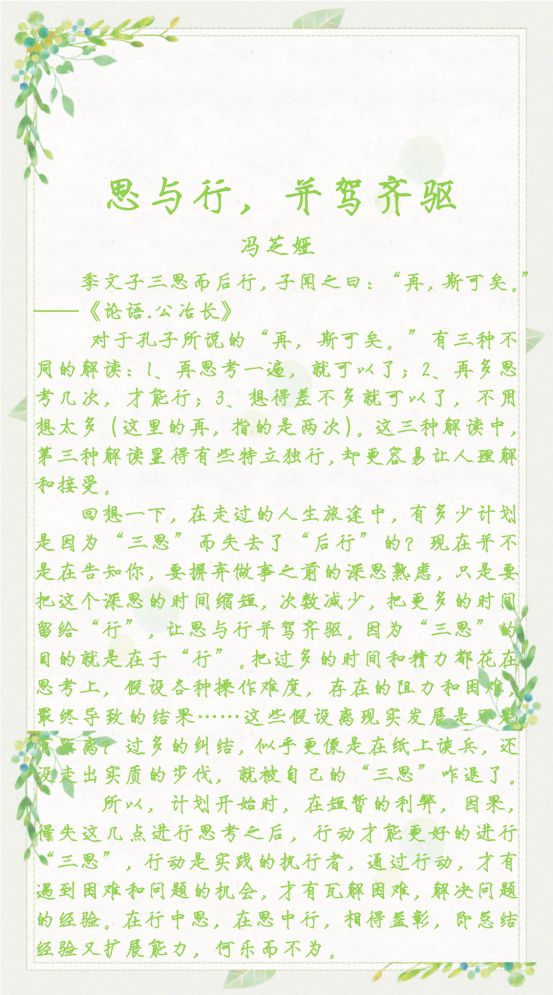 思与行，并驾齐驱
冯芝娅
季文子三思而后行，子闻之曰：“再，斯可矣。”
——《论语.公冶长》
对于孔子所说的“再，斯可矣。”有三种不
同的解读：1、再思考一遍，就可以了；2、再多思
考几次，才能行；3、想得差不多就可以了，不用
想太多（这里的再，指的是两次）。这三种解读中，
第三种解读显得有些特立独行，却更容易让人理解
和接受。
回想一下，在走过的人生旅途中，有多少计划
是因为“三思”而失去了“后行”的？现在并不
是在告知你，要摒弃做事之前的深思熟虑，只是要
把这个深思的时间缩短，次数减少，把更多的时间
留给“行”，让思与行并驾齐驱。因为“三思”的
目的就是在于“行”。把过多的时间和精力都花在
思考上，假设各种操作难度，存在的阻力和困难，
最终导致的结果……这些假设离现实发展是
过多的纠结，似乎更像是在纸上谈兵，还
没走出实质的步伐，就被自己的“三思”咋退了。
所以，计划开始时，在短暂的利弊，因果，
得失这几点进行思考之后，行动才能更好的进行
“三思”，行动是实践的执行者，通过行动，才有
遇到困难和问题的机会，才有瓦解困难，解决问题
的经验。在行中思，在思中行，相得益彰，即总结
经验又扩展能力，何乐而不为。